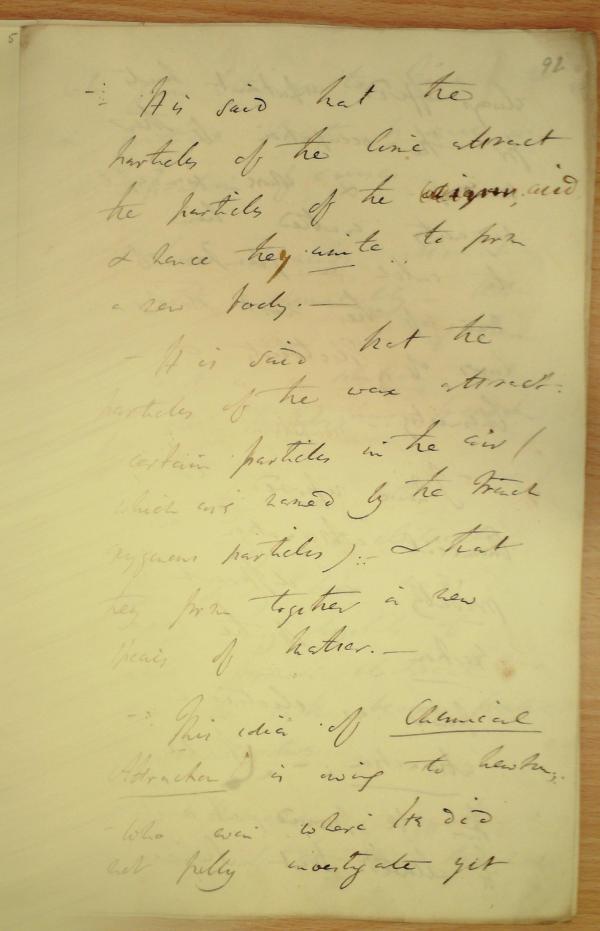 5
92
It is said that the
particles of the lime attract
the particles of the acid
& hence they unite to form
a new body. —
- It is said that the
particles of the wax attract
certain particles in the air (
which are named by the French
oxygenous particles) :- & that
they form together a new
species of matter. —
This idea of Chemical
Attraction is owing to Newton
who even where He did
not fully investigate yet